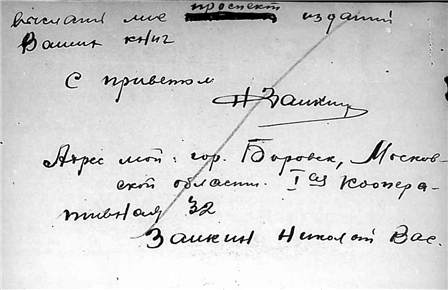 выслать мне проспект изданий
Ваших книг
С приветом
НЗаикин
Адрес мой: гор. Боровск, Москов-
ской области. Iая Коопера-
тивная 32
Заикин Николай Вас.